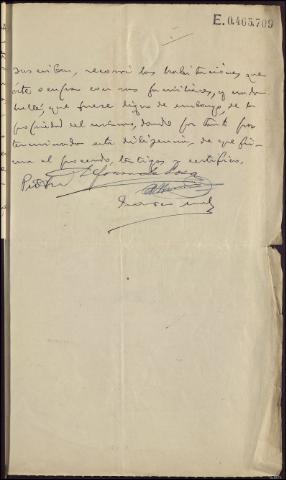 E.0465.709
suscriben, recorrí las habitaciones que
éste ocupa con sus familiares, y nada
hallé, que fuese digno de embargo, de la
propiedad del mismo, dando por tanto por
terminada esta diligencia, de que fir-
ma el procesado, testigos y certifico.